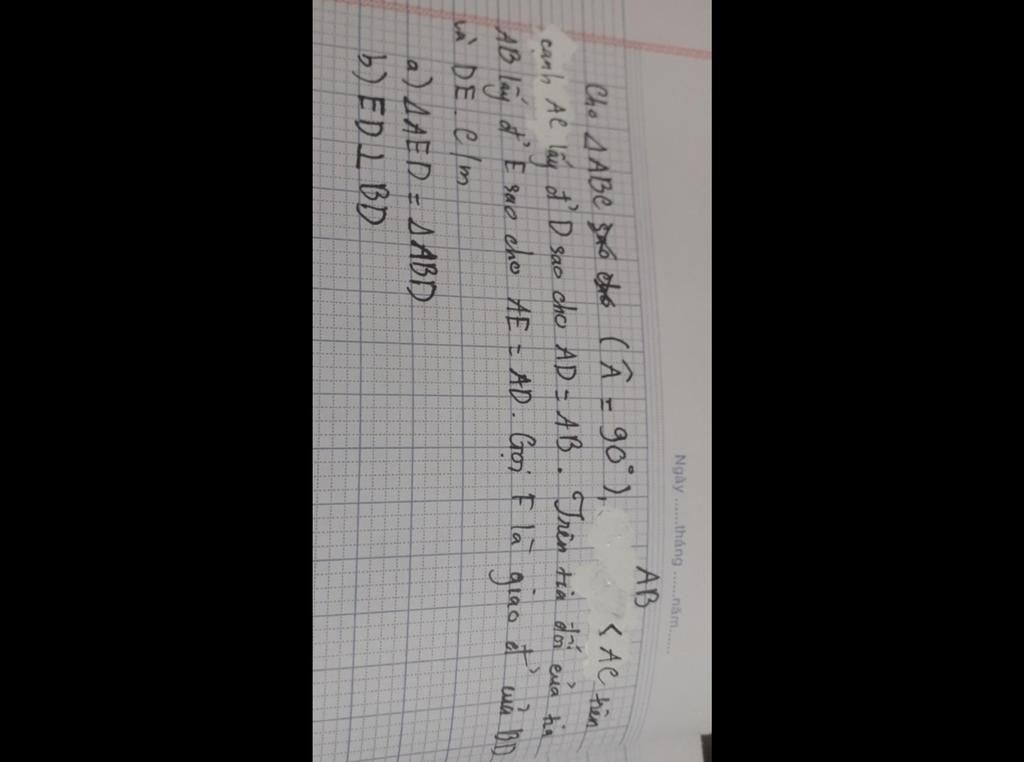 Ngày ......tháng ......năm......
AB
Cho ΔABC sao cho (Â = 90°), < AC trên
cạnh AC lấy đ' D sao cho AD = AB. Trên tia đối của tia
AB lấy đ' E sao cho AE = AD. Gọi F là giao đ' của BD
và DE. C/m
a) ΔAED = ΔABD
b) ED ⊥ BD